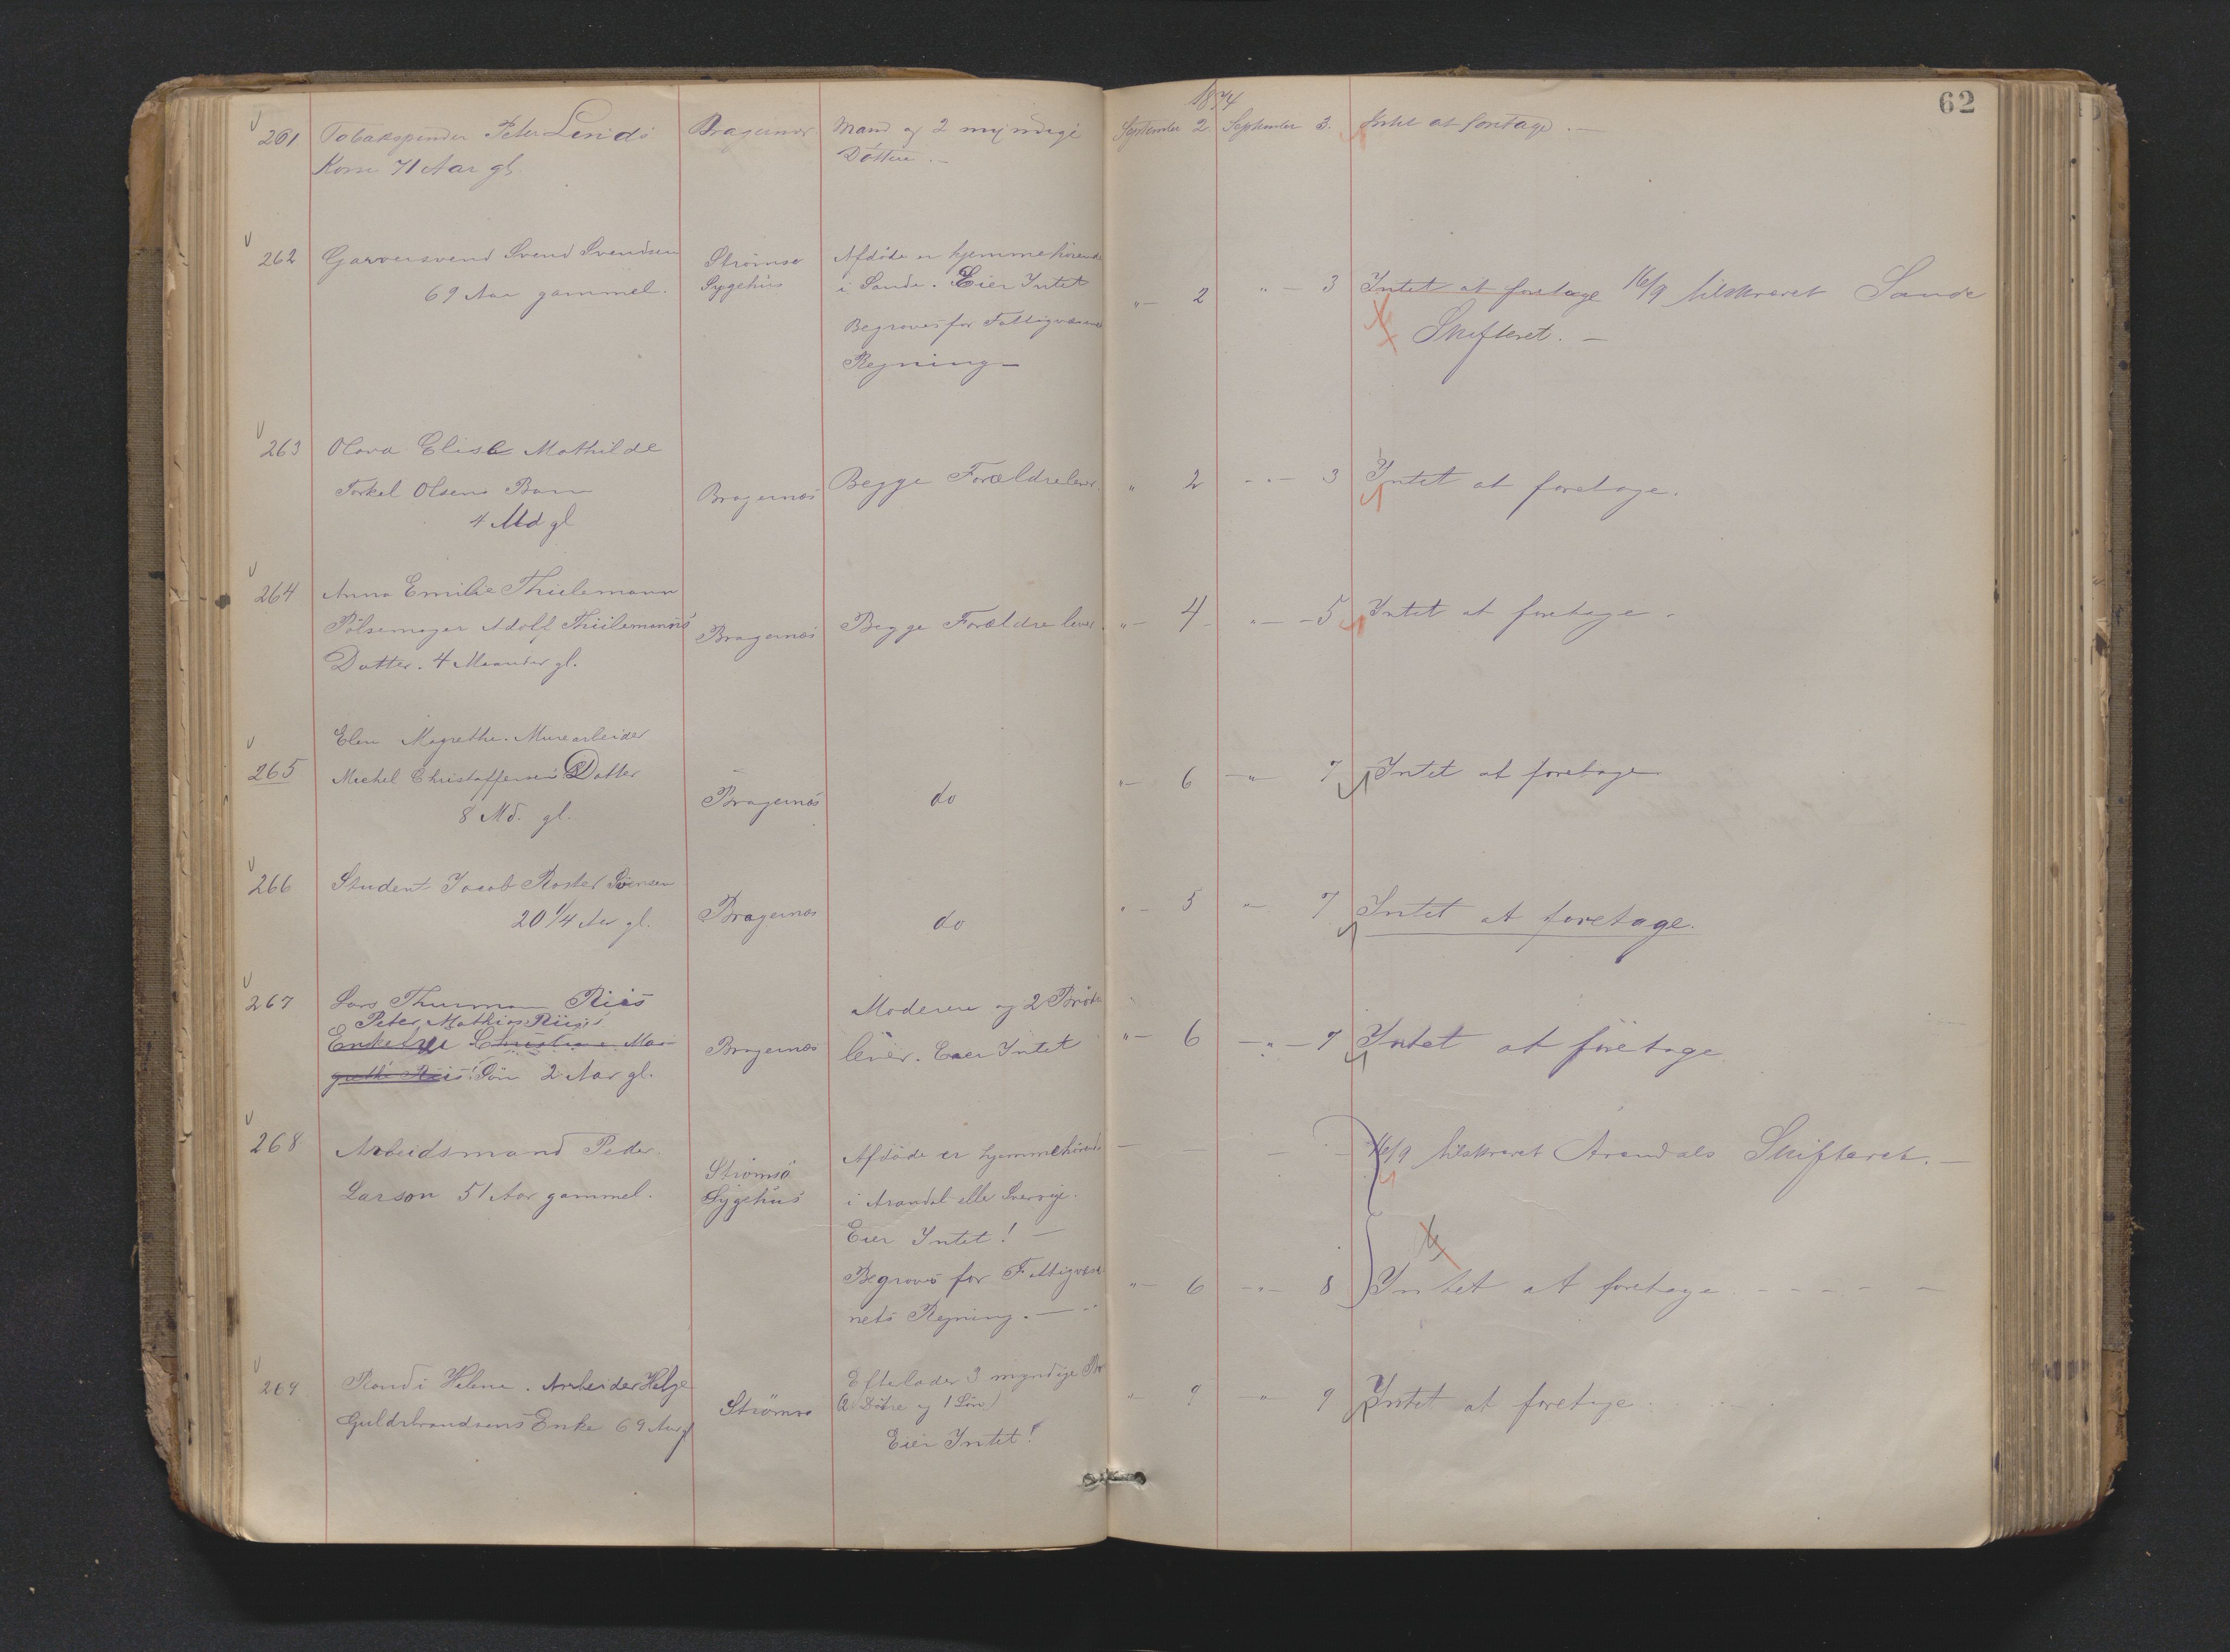 1874
62
261 Tobakspinder Peter Linds Bragernes Mand og 2 myndige September 2 September 3. Intet at foretage.
Kone 71 Aar gl Døttre.
262 Garversvend Svend Svendsen Strømsø Afdøde er hjemmehørende
69 Aar gammel. Sygehus i Sande. Eier Intet " 2 " 3 Intet at foretage 16/9 tilskrevet Sande
Begraves for Fattigvæsenets Skifteret.
Regning
263 Olava Elise Mathilde
Torkel Olsens Barn Bragernæs Begge Forældre lever. " 2 " 3 Intet at foretage.
4 Md gl
264 Anna Emilie Thielemann
Pølsemager Adolf Thielemanns Bragernæs Begge Forældre lever. " 4 " 5 Intet at foretage
Datter. 4 Maaneder gl.
Elen Magrethe. Murearbeider
265 Michel Christoffersens Datter Bragernæs do " 6 " 7 Intet at foretage
8 Md. gl.
266 Student Jacob Sörensen
20 1/4 Aar gl. Bragernæs do " 5 " 7 Intet at foretage.
267 Lars Thurman Riis Moderen og 2 Brødre
Peter Mathias Riis's
Enkefru Christiane Mar- Bragernæs lever. Eier Intet " 6 " 7 Intet at foretage
grethe Riis' Sön 2 Aar gl.
268 Arbeidsmand Peder Strömsö Afdöde er hjemmehörende 16/9 tilskrevet Arendals Skifteret.
Larson 51 Aar gammel. Sygehus i Arendal eller Sverrige.
Eier Intet!
Begraves for Fattigvæse- " 6 " 8 Intet at foretage
nets Regning.
269 Randi Helene. Arbeider Helge Strömsö Efterlader 3 myndige " 9 " 9 Intet at foretage
Guldbrandsens Enke 69 Aar gl (2 Døtre og 1 Sön)
Eier Intet!